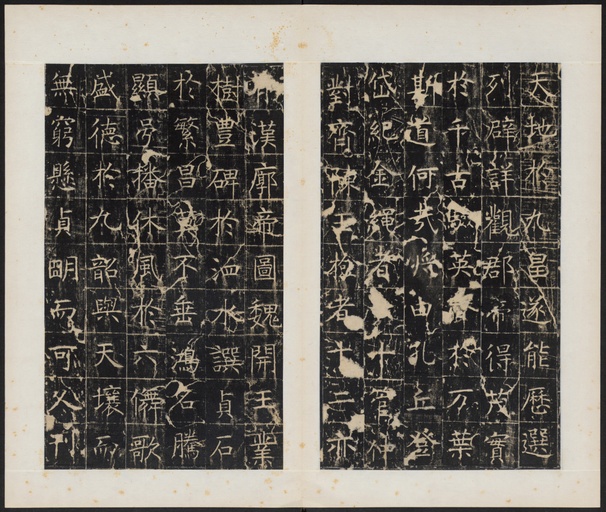 天地於九皇遂能歷選
列辟詳觀郡帝得茂實
於千古英於万葉
斯道何哉將由孔丘登
岱紀金繩者八十管仲
對齊陳玉檢者十二亦
漢廓帝圖魏開王業
樹豐碑於泗水譔貞石
於繁昌莫不垂鴻名騰
顯号播休風於六儛歌
盛德於九韶與天壤而
無窮懸貞明而可久刊